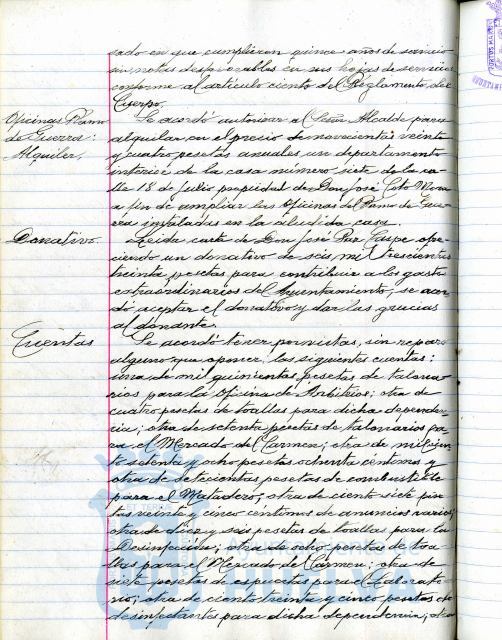 sado en que cumplieron quince años de servicio
sin notas desfavorables en sus hojas de servicios
conforme al artículo ciento del Reglamento del
Cuerpo.
Oficinas Ramo
de Guerra:
Alquiler.
Se acordó autorizar al Señor Alcalde para
alquilar en el precio de novecientas veinte
y cuatro pesetas anuales un departamento
interior de la casa número siete de la ca-
lle 18 de Julio propiedad de Don José Coto Mora
a fin de ampliar las Oficinas del Ramo de Gue-
rra instaladas en la aludida casa.
Donativo.
Leida carta de Don José Paz Caspe ofre-
ciendo un donativo de seis mil trescientas
treinta pesetas para contribuir a los gastos
extraordinarios del Ayuntamiento, se acor-
dó aceptar el donativo y dar las gracias
al donante.
Cuentas
Se acordó tener por vistas, sin reparo
alguno que oponer, las siguientes cuentas:
una de mil quinientas pesetas de talona-
rios para la Oficina de Arbitrios; otra de
cuatro pesetas de toallas para dicha dependen-
cia; otra de setenta pesetas de talonarios pa-
ra el Mercado del Carmen; otra de mil cien-
to setenta y ocho pesetas ochenta céntimos y
otra de setecientas pesetas de combustible
para el Matadero; otra de ciento siete pese-
tas veinte y cinco céntimos de anuncios varios;
otra de diez y seis pesetas de toallas para la
Desinfección; otra de ocho pesetas de toa-
llas para el Mercado del Carmen; otra de
siete pesetas de espuertas para el Laborato-
rio; otra de ciento treinta y cinco pesetas de
desinfectantes para dicha dependencia; otra